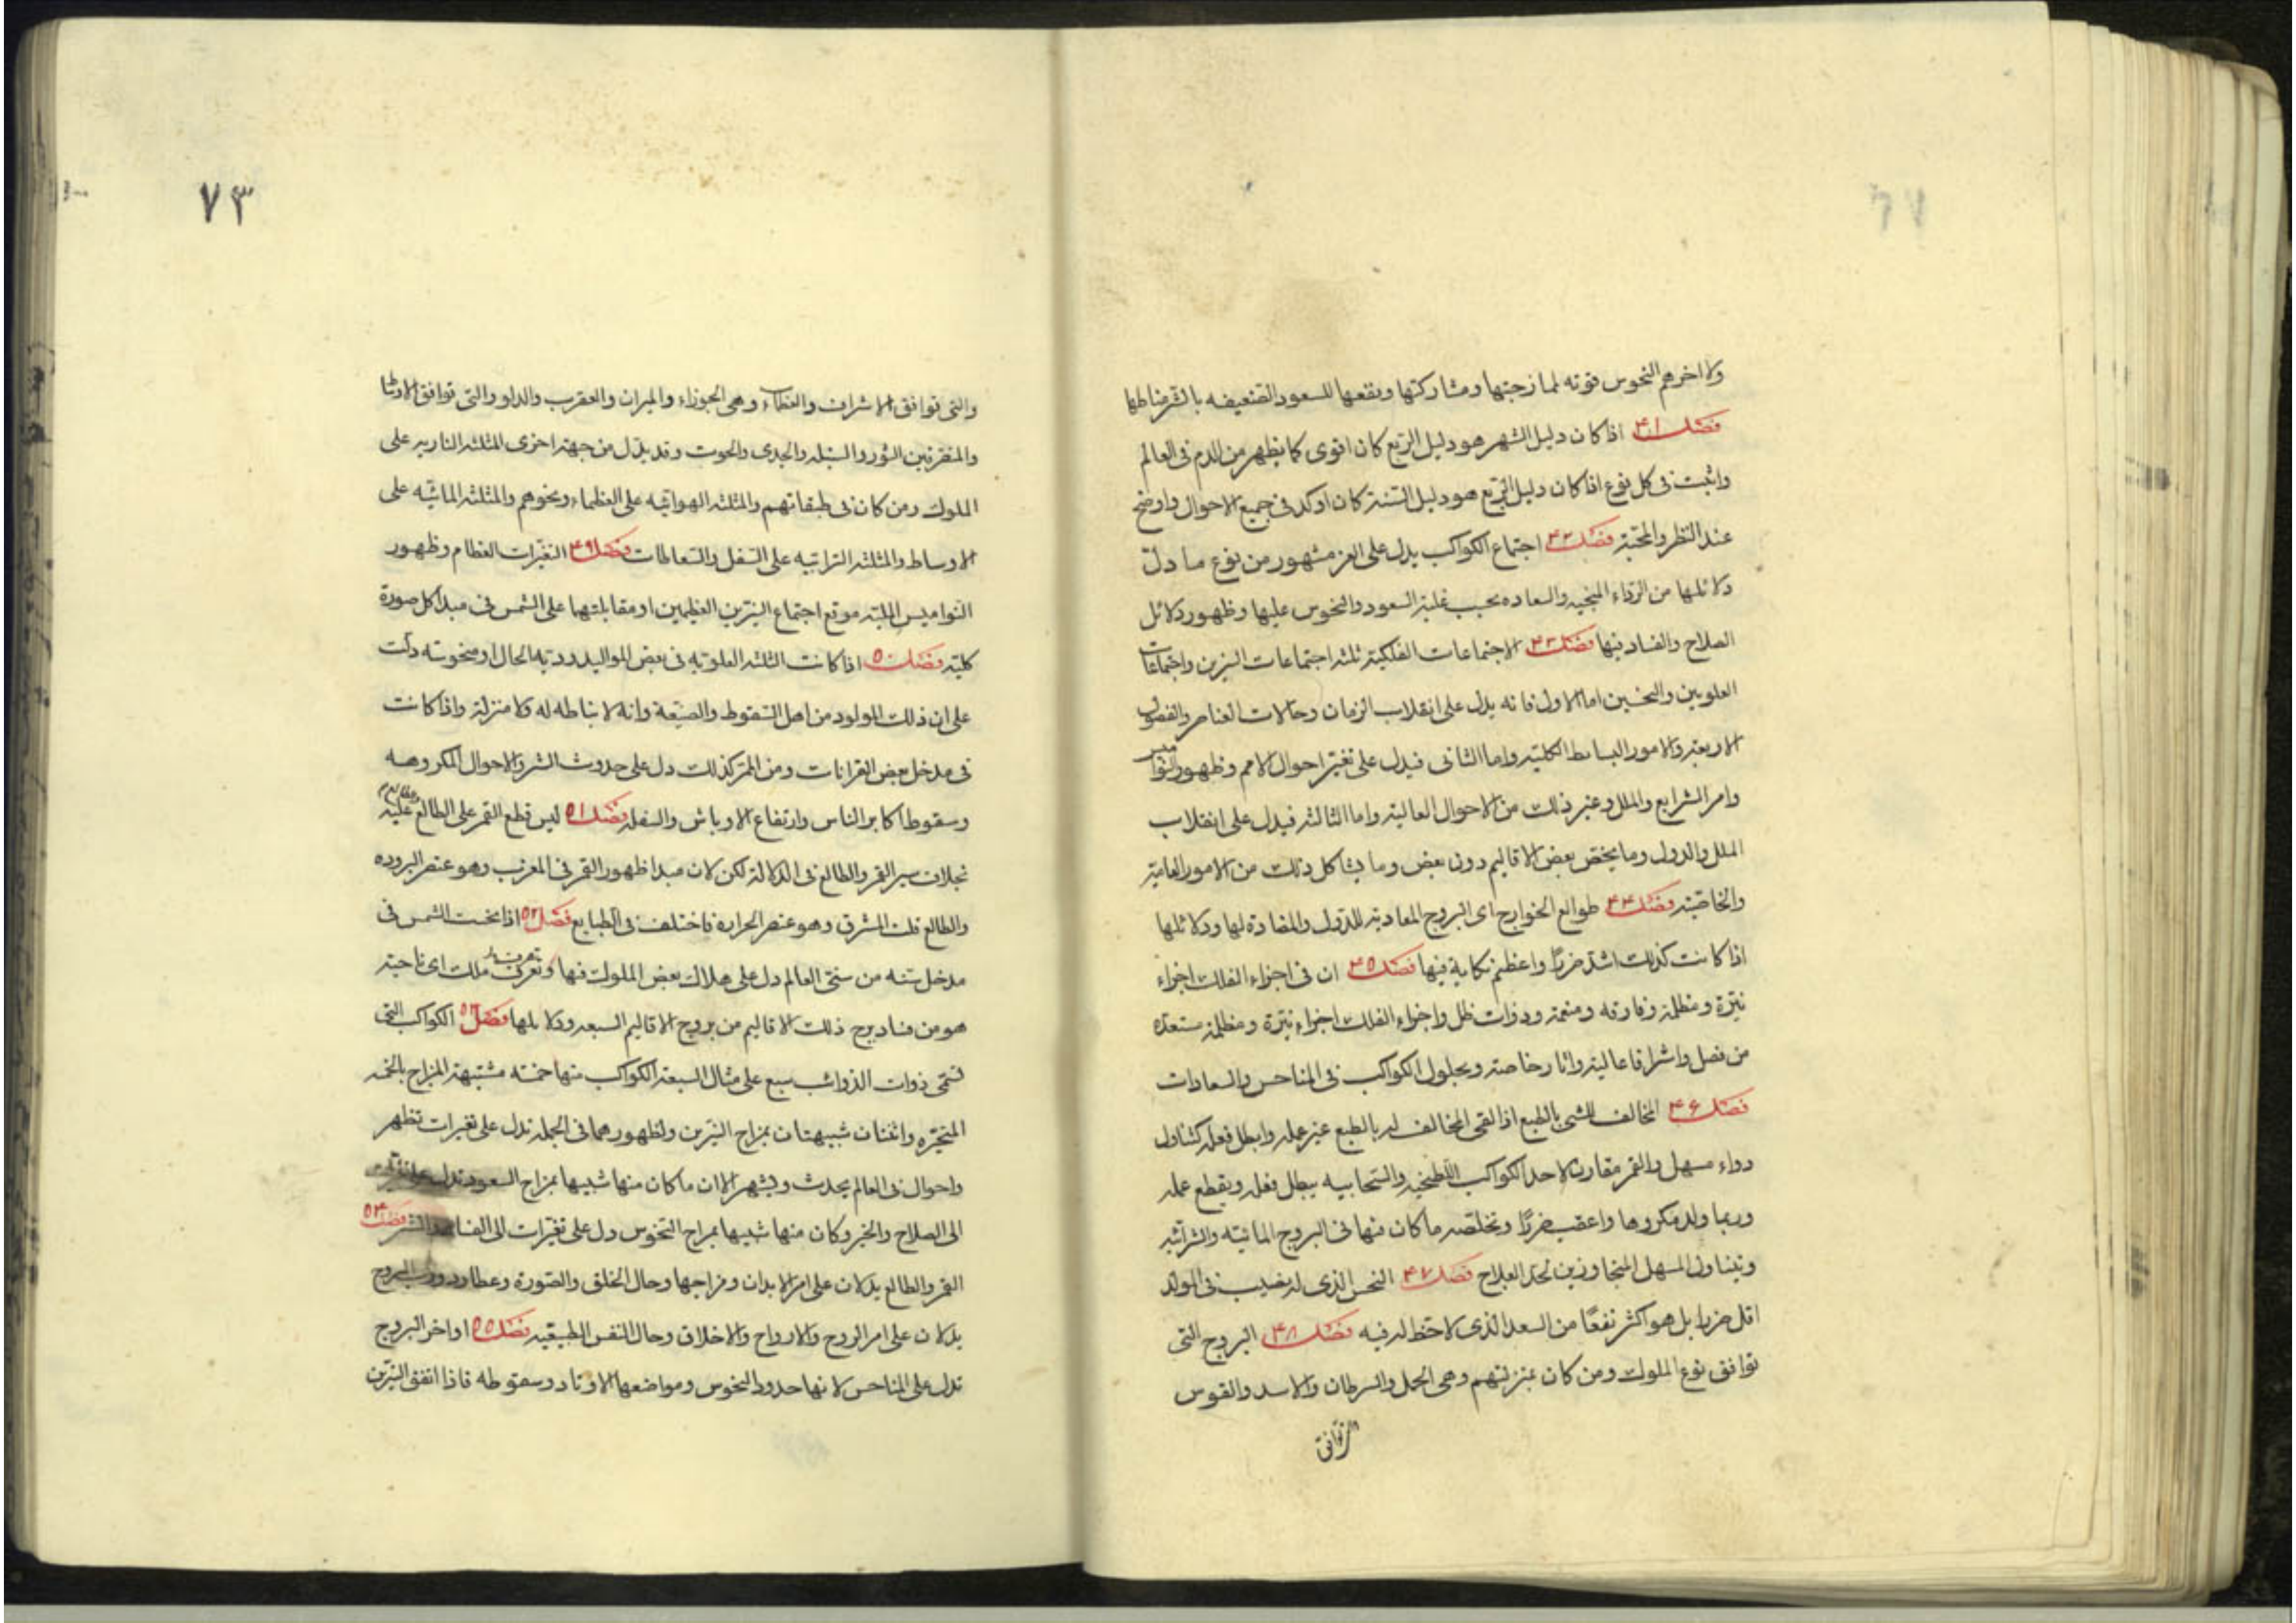 ولا اخرهم النحوس قوته لممازجتها ومشاركتها ونفعها للسعود الضعيفه بالشر مخالطها
فصل ۴۱ اذا كان دليل الشهر هو دليل الربع كان اقوى كما يظهر من الدم فى العالم
واثبت فى كل نوع اذا كان دليل الربع هو دليل السنة كان اوكد فى جميع الاحوال واوضح
عند النظر والمحبة فصل ۴۲ اجتماع الكواكب يدل على العز مشهور من نوع ما دل
دلائلها من الرداء المنجيه والسعاده بحسب غلبة السعود والنحوس عليها وظهور دلائل
الصلاح والفساد فيها فصل ۴۳ الاجتماعات الفلكية ثلثة اجتماعات النيرين واجتماعات
العلويين والنحسين اما الاول فانه يدل على انقلاب الزمان وحالات العناصر والفصول
الاربعة والامور البسائط الكلية واما الثانى فيدل على تغير احوال الامم وظهور النواميس
وامر الشرايع والملل وغير ذلك من الاحوال العالية واما الثالثه فيدل على انقلاب
الملل والدول وما يختص بعض الاقاليم دون بعض وما يشاكل ذلك من الامور العامية
والخاصية فصل ۴۴ طوالع الخوارج اى البروج المعادية للدول والمضادة لها ودلائلها
اذا كانت كذلك اشد ضررًا واعظم نكاية فيها فصل ۴۵ ان فى اجزاء الفلك اجزاء
نيرة ومظلمة وفارقه ومنتمة وذوات ظل واجزاء الفلك اجزاء نيرة ومظلمة مستعدة
من فضل واشراقا عالية واثار خاصة وبحلول الكواكب فى المناحس والسعادات
فصل ۴۶ المخالف للشى بالطبع اذا لقى المخالف له بالطبع غير عمله وابطل فعله كتناول
دواء مسهل والقمر مقارنا لاحد الكواكب اللطخية والسحابيه يبطل فعله ويقطع عمله
وربما ولد مكروها واعقب ضررًا وبخاصه ما كان منها فى البروج المائيه والترابيه
ويتناول المسهل المتجاوزين لحد العلاج فصل ۴۷ النحس الذى له نصيب فى المولد
اقل ضررا بل هو اكثر نفعًا من السعد الذى لا حظ له فيه فصل ۴۸ البروج التى
توافق نوع الملوك ومن كان بمنزلتهم وهى الحمل والسرطان والاسد والقوس
والتى توافق
۷۳
والتى توافق الاشراف والعظماء وهى الجوزاء والميزان والعقرب والدلو والتى توافق الاوساط
والمتفرقين الثور والسنبله والجدى والحوت وقد يدل من جهة اخرى المثلثه الناريه على
الملوك ومن كان فى طبقاتهم والمثلثه الهوائيه على العظماء ونحوهم والمثلثه المائيه على
الاوساط والمثلثه الترابيه على السفل والسقاطات فصل ۴۹ التغيرات العظام وظهور
النواميس المليه موقع اجتماع النيرين العظيمين او مقابلتهما على الشمس فى مبدا كل صورة
كليه فصل ۵۰ اذا كانت الثلثه العلويه فى بعض المواليد رديه الحال او منحوسه دلت
على ان ذلك المولود من اهل السقوط والضيعة وانه لا نباطه له ولا منزلة واذا كانت
فى مدخل بعض القرانات ومن الممر كذلك دل على حدوث الشر والاحوال المكروهه
وسقوط اكابر الناس وارتفاع الاوباش والسفله فصل ۵۱ ليس قطع القمر على الطالع عليه
بخلاف سير القمر والطالع فى الدلالة لكن لان مبدا ظهور القمر فى المغرب وهو عنصر البروده
والطالع فلك المشرق وهو عنصر الحراره فاختلف فى الطبايع فصل ۵۲ اذا نحست الشمس فى
مدخل سنه من سنى العالم دل على هلاك بعض الملوك فيها وتعرف ملك اى ناحيه
هو من فساد برج ذلك الاقاليم من بروج الاقاليم السبعه ودلايلها فصل ۵۳ الكواكب التى
تسمى ذوات الذوائب سبع على مثال السبعة الكواكب منها خمسه مشبهة المزاج بالخمسه
المتحيره واثنتان شبيهتان بمزاج النيرين ولظهورهما فى الجمله تدل على تغيرات تظهر
واحوال فى العالم يحدث ويشهر الا ان ما كان منها شبيها بمزاج السعود تدل على
الى الصلاح والخير وكان منها شبيها بمزاج النحوس دل على تغيرات الى الفساد والشر فصل ۵۴
القمر والطالع يدلان على امر الابدان ومزاجها وحال الخلق والصورة وعطارد ورب البروج
يدلان على امر الروح والارواح والاخلاق وحال النفس الطبيعيه فصل ۵۵ اواخر البروج
تدل على المناحس لانها حدود النحوس ومواضعها الاوتاد وسقوطه فاذا اتفق النيرين